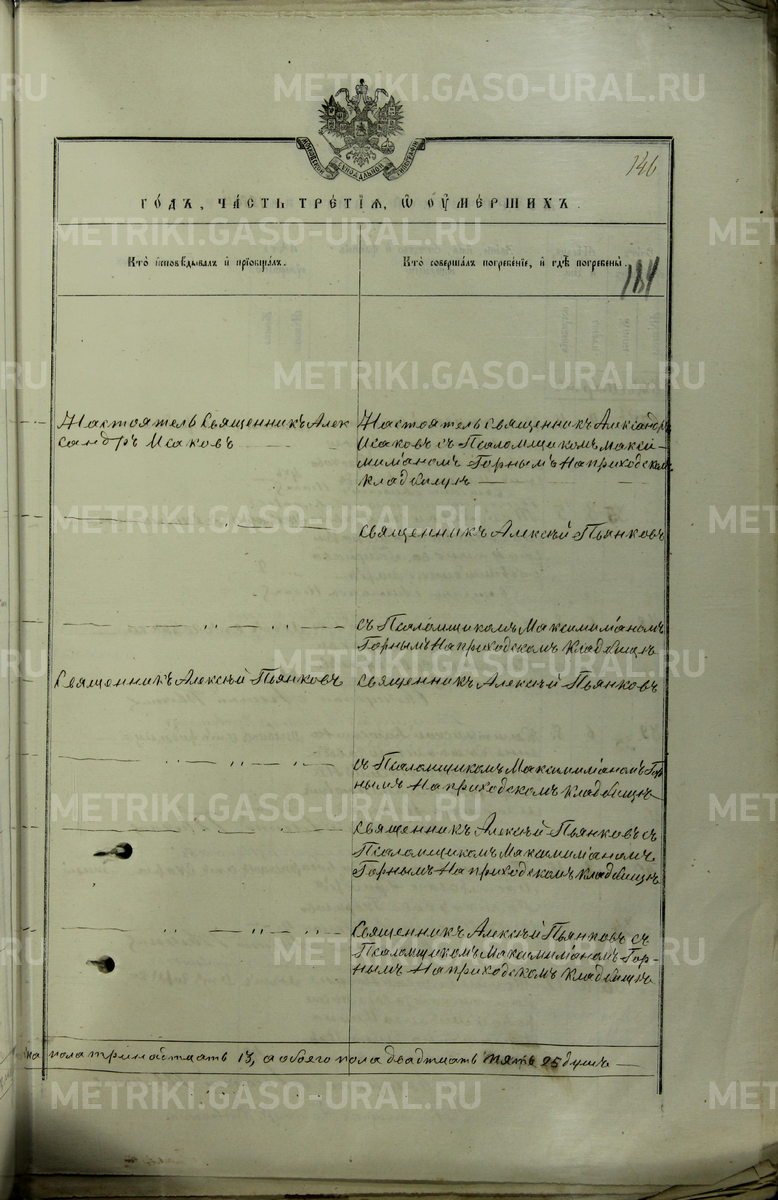 METRIKI.GASO-URAL.RU
146
МОСКОВСКОЙ СѴНОДАЛЬНОЙ ТИПОГРАФІИ
ГО́ДЪ, ЧА́СТЬ ТРЕ́ТІѦ, Ѡ ОУМЕ́РШИХЪ.
Кто̀ и҆сповѣ́дывалъ и҆ прїѻбща́лъ.
Кто̀ соверша́лъ погребе́нїе, и҆ гдѣ̀ погребены̀.
184
Настоятель Священникъ Алек
сандръ Исаковъ
Настоятель Священникъ Александръ
Исаковъ съ Псаломщикомъ Макси-
миліаномъ Горнымъ На приходскомъ
Кладбищѣ
Священникъ Алексѣй Пьянковъ
съ Псаломщикомъ Максимиліаномъ
Горнымъ На приходскомъ Кладбищѣ
Священникъ Алексѣй Пьянковъ
Священникъ Алексѣй Пьянковъ
съ Псаломщикомъ Максимиліаномъ Гор
нымъ На приходскомъ Кладбищѣ
Священникъ Алексѣй Пьянковъ съ
Псаломщикомъ Максимиліаномъ
Горнымъ На приходскомъ Кладбищѣ
Священникъ Алексѣй Пьянковъ съ
Псаломщикомъ Максимиліаномъ Гор-
нымъ На приходскомъ Кладбищѣ
на пола тринадтцать 13, а обоего пола двадтцать пять 25 душъ